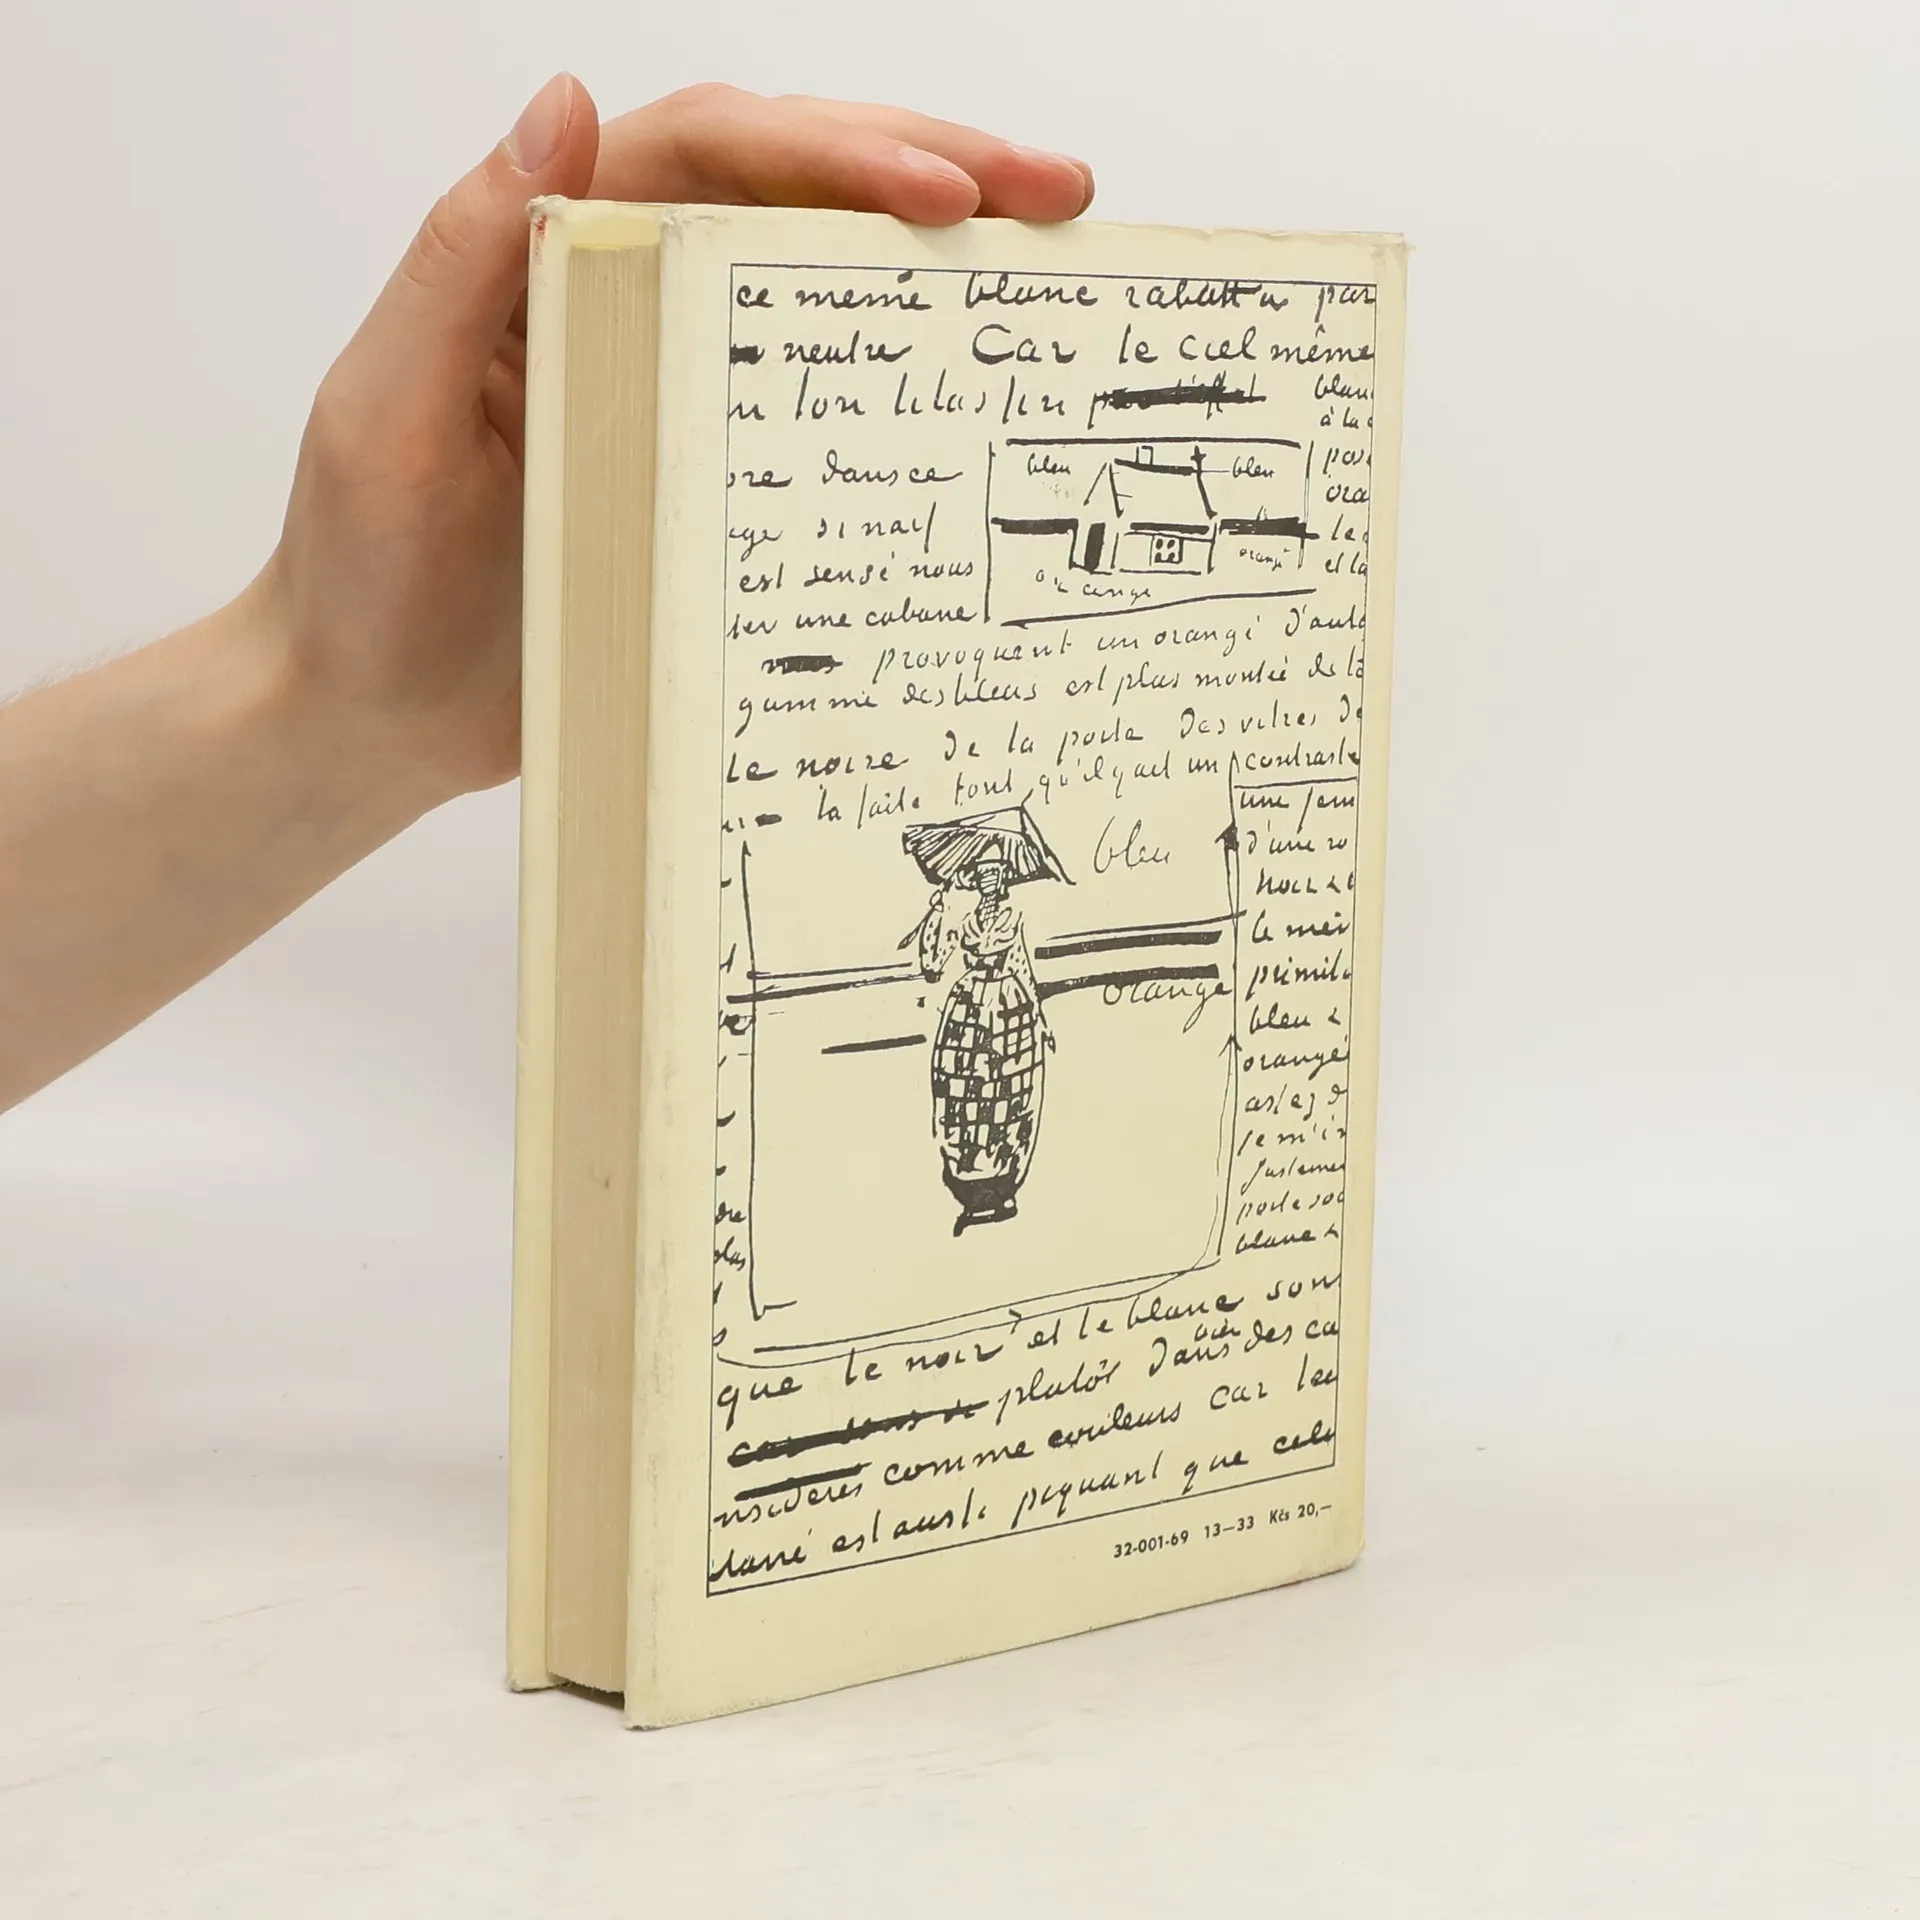 ce meme blanc rabattu par
neutre Car le ciel même
ton lilas fin
blanc
à la
dans ce
bleu
bleu
si naif
est sensé nous
orangé
orangé
et la
une cabane
provoquent un orangé d'auta
gamme des bleus est plus montée de la
le noire de la porte des vitres de
la faite tout qu'il y ait un contraste
une fem
d'une ro
bleu
noir &
le mei
orangé
primit
bleu &
orangé
assez d
je m'in
justemen
blanc &
que le noir et le blanc son
plutôt dans bien des ca
comme couleurs car leu
est aussi piquant que celu
32-001-69 13—33 Kčs 20,—